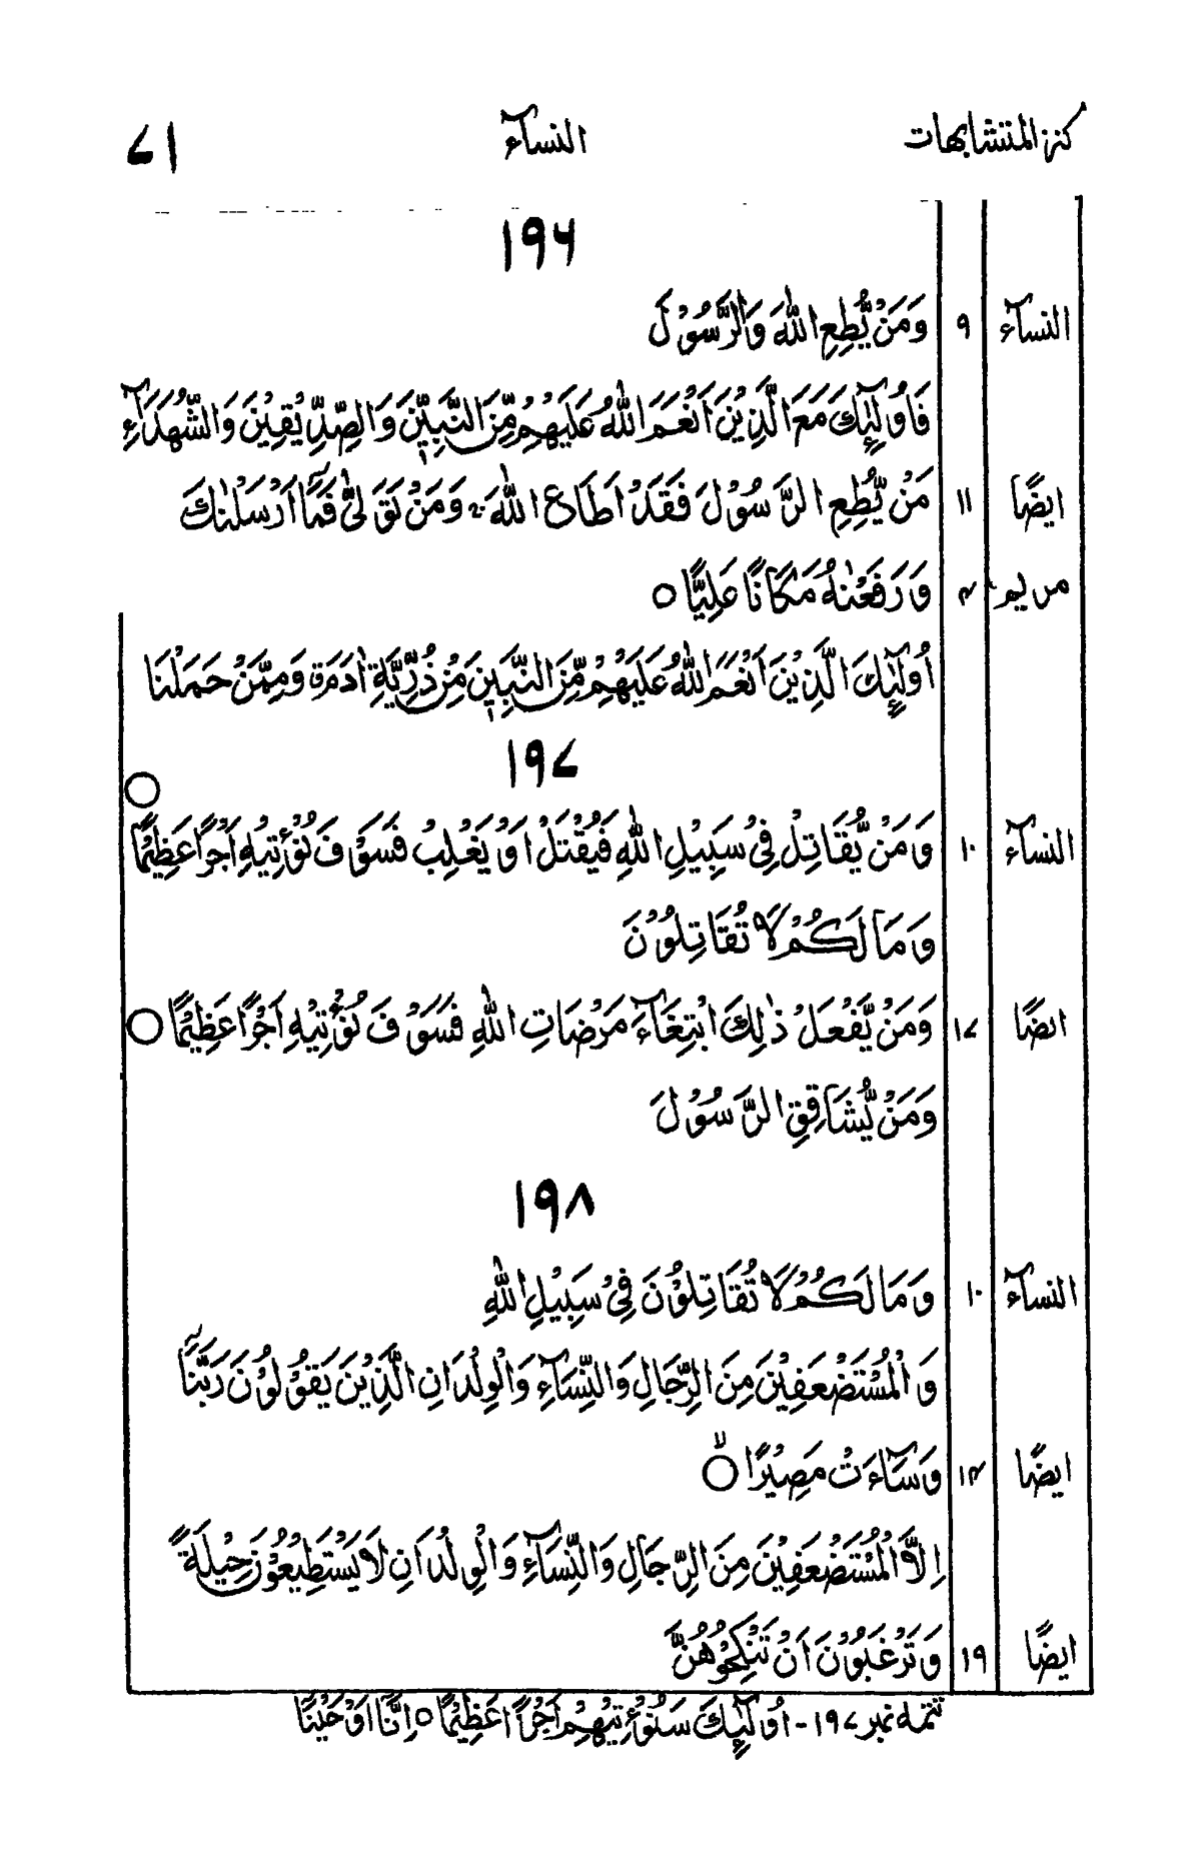 كنز المتشابهات النسآء ۷۱
۱۹۶
النسآء ۹ وَمَنْ يُّطِعِ اللّٰهَ وَالرَّسُوْلَ
فَاُولٰٓئِكَ مَعَ الَّذِيْنَ اَنْعَمَ اللّٰهُ عَلَيْهِمْ مِّنَ النَّبِيّٖنَ وَالصِّدِّيْقِيْنَ وَالشُّهَدَآءِ
ايضًا ۱۱ مَنْ يُّطِعِ الرَّسُوْلَ فَقَدْ اَطَاعَ اللّٰهَ ۚ وَمَنْ تَوَلّٰى فَمَآ اَرْسَلْنٰكَ
مريم ۴ وَرَفَعْنٰهُ مَكَانًا عَلِيًّا ○
اُولٰٓئِكَ الَّذِيْنَ اَنْعَمَ اللّٰهُ عَلَيْهِمْ مِّنَ النَّبِيّٖنَ مِنْ ذُرِّيَّةِ اٰدَمَ ق وَمِمَّنْ حَمَلْنَا
۱۹۷
النسآء ۱۰ وَمَنْ يُّقَاتِلْ فِيْ سَبِيْلِ اللّٰهِ فَيُقْتَلْ اَوْ يَغْلِبْ فَسَوْفَ نُؤْتِيْهِ اَجْرًا عَظِيْمًا ○
وَمَا لَكُمْ لَا تُقَاتِلُوْنَ
ايضًا ۱۷ وَمَنْ يَّفْعَلْ ذٰلِكَ ابْتِغَآءَ مَرْضَاتِ اللّٰهِ فَسَوْفَ نُؤْتِيْهِ اَجْرًا عَظِيْمًا ○
وَمَنْ يُّشَاقِقِ الرَّسُوْلَ
۱۹۸
النسآء ۱۰ وَمَا لَكُمْ لَا تُقَاتِلُوْنَ فِيْ سَبِيْلِ اللّٰهِ
وَالْمُسْتَضْعَفِيْنَ مِنَ الرِّجَالِ وَالنِّسَآءِ وَالْوِلْدَانِ الَّذِيْنَ يَقُوْلُوْنَ رَبَّنَآ
ايضًا ۱۴ وَسَآءَتْ مَصِيْرًا ○ لا
اِلَّا الْمُسْتَضْعَفِيْنَ مِنَ الرِّجَالِ وَالنِّسَآءِ وَالْوِلْدَانِ لَا يَسْتَطِيْعُوْنَ حِيْلَةً
ايضًا ۱۹ وَتَرْغَبُوْنَ اَنْ تَنْكِحُوْهُنَّ
تتمه نمبر ۱۹۷ - اُولٰٓئِكَ سَنُؤْتِيْهِمْ اَجْرًا عَظِيْمًا ○ اِنَّآ اَوْحَيْنَآ